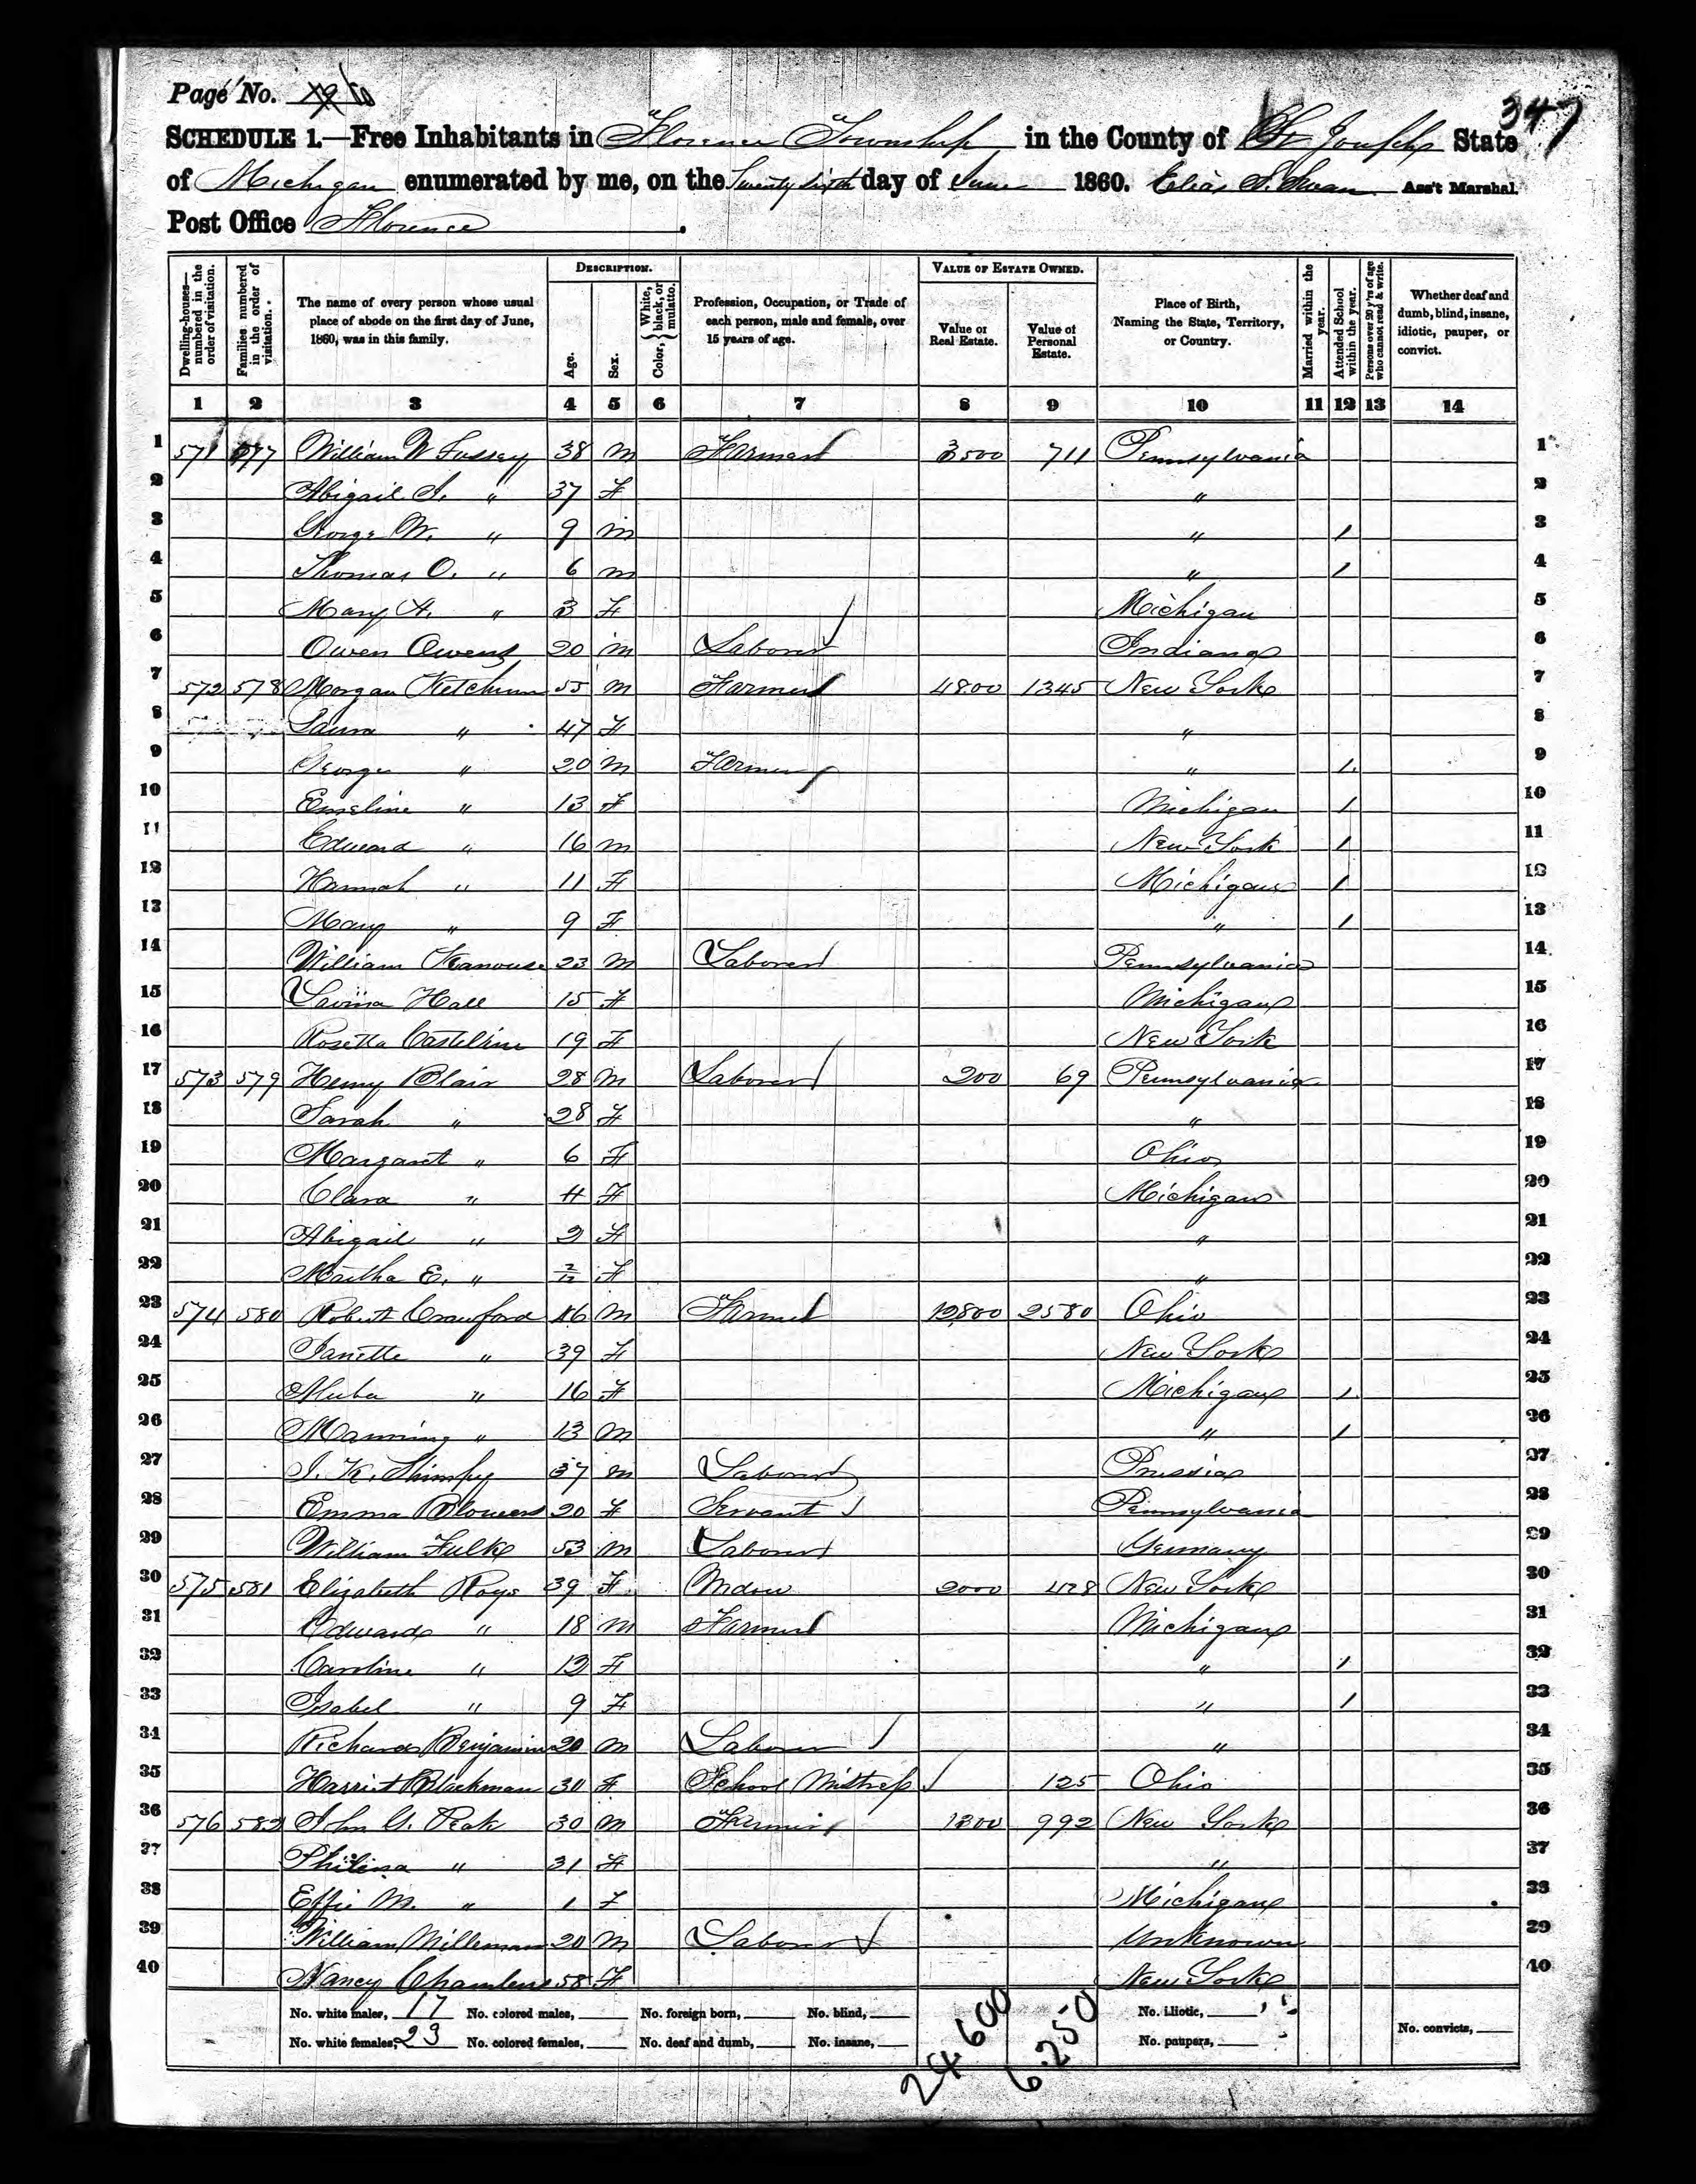 Page No.
347
SCHEDULE 1.—Free Inhabitants in Florence Township in the County of St Joseph State
of Michigan enumerated by me, on the Twenty sixth day of June 1860. Elias S. Swan Ass't Marshal.
Post Office Florence .
Dwelling-houses— numbered in the order of visitation.
Families numbered in the order of visitation.
The name of every person whose usual place of abode on the first day of June, 1860, was in this family.
DESCRIPTION.
Age.
Sex.
Color, { White, black, or mulatto.
Profession, Occupation, or Trade of each person, male and female, over 15 years of age.
VALUE OF ESTATE OWNED.
Value of Real Estate.
Value of Personal Estate.
Place of Birth, Naming the State, Territory, or Country.
Married within the year.
Attended School within the year.
Persons over 20 y'rs of age who cannot read & write.
Whether deaf and dumb, blind, insane, idiotic, pauper, or convict.
1 2 3 4 5 6 7 8 9 10 11 12 13 14
1 571 577 William W Fussey 38 M Farmer 3500 711 Pennsylvania 1
2 Abigail J. " 37 F " 2
3 George W. " 9 M " 1 3
4 Thomas O. " 6 M " 1 4
5 Mary A. " 3 F Michigan 5
6 Owen Owens 20 M Laborer Indiana 6
7 572 578 Morgan Ketchum 55 M Farmer 4800 1345 New York 7
8 Laura " 47 F " 8
9 George " 20 M Farmer " 1 9
10 Emeline " 13 F Michigan 1 10
11 Edward " 16 M New York 1 11
12 Hannah " 11 F Michigan 1 12
13 Mary " 9 F " 1 13
14 William Kanouse 23 M Laborer Pennsylvania 14
15 Lovina Hall 15 F Michigan 15
16 Rosetta Casteline 19 F New York 16
17 573 579 Henry Blair 28 M Laborer 200 69 Pennsylvania 17
18 Sarah " 28 F " 18
19 Margaret " 6 F Ohio 19
20 Clara " 4 F Michigan 20
21 Abigail " 2 F " 21
22 Martha E. " 2/12 F " 22
23 574 580 Robert Crawford 46 M Farmer 12800 2580 Ohio 23
24 Janette " 39 F New York 24
25 " 16 F Michigan 1 25
26 Manning " 13 M " 1 26
27 J. K. 37 M Laborer Prussia 27
28 Emma Blowers 20 F Servant Pennsylvania 28
29 William Fulks 53 M Laborer Germany 29
30 575 581 Elizabeth Roys 39 F Widow 2000 428 New York 30
31 Edward " 18 M Farmer Michigan 31
32 Caroline " 12 F " 1 32
33 Isabel " 9 F " 1 33
34 Richard Benjamin 20 M Laborer " 34
35 Harriet Blackman 30 F School Mistress 125 Ohio 35
36 576 582 John G. Peak 30 M Farmer 1300 992 New York 36
37 Philena " 31 F " 37
38 Effie M. " 1 F Michigan 38
39 William Milleman 20 M Laborer Unknown 39
40 Nancy Chambers 58 F New York 40
No. white males, 17 No. colored males, No. foreign born, No. blind, 24600 6.250 No. idiotic,
No. white females, 23 No. colored females, No. deaf and dumb, No. insane, No. paupers, No. convicts,